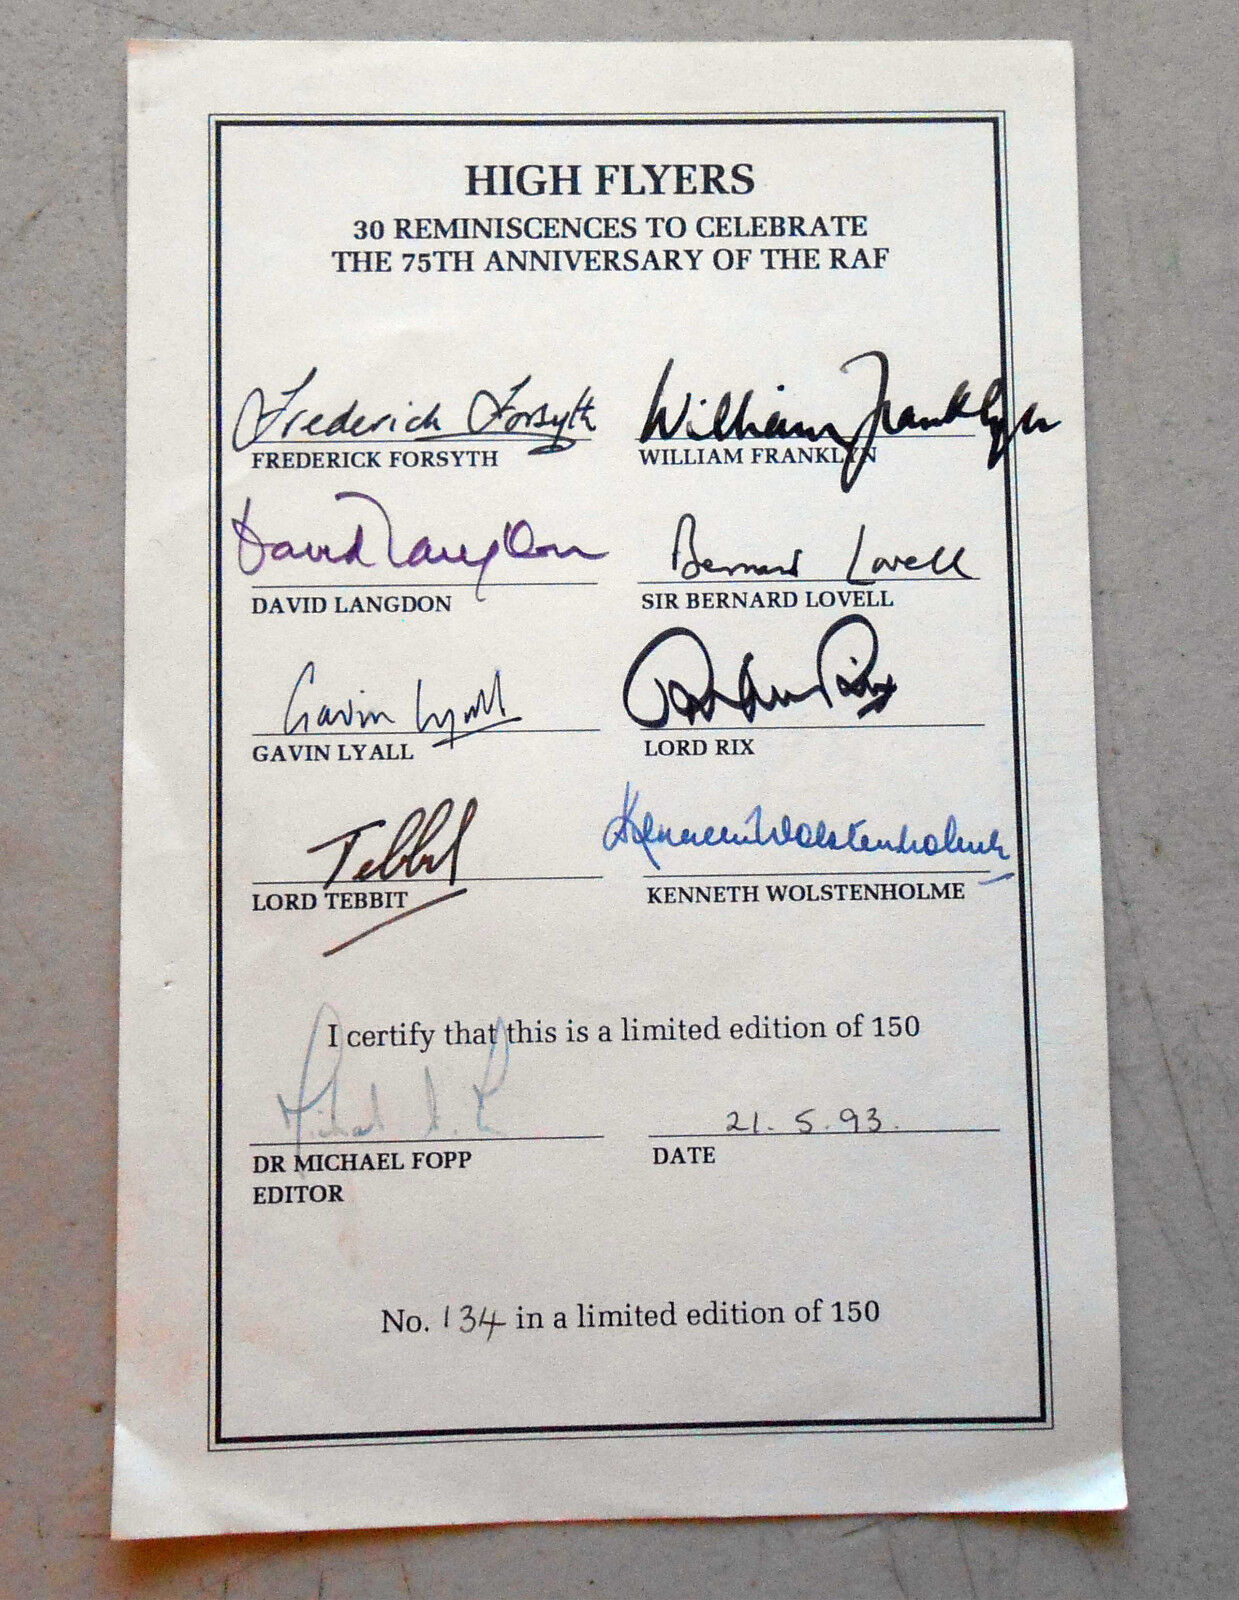 HIGH FLYERS
30 REMINISCENCES TO CELEBRATE
THE 75TH ANNIVERSARY OF THE RAF
Frederick Forsyth
William Franklyn
FREDERICK FORSYTH
WILLIAM FRANKLYN
David Langdon
Bernard Lovell
DAVID LANGDON
SIR BERNARD LOVELL
Gavin Lyall
Rix
GAVIN LYALL
LORD RIX
Tebbit
Kenneth Wolstenholme
LORD TEBBIT
KENNETH WOLSTENHOLME
I certify that this is a limited edition of 150
Michael
21.5.93.
DR MICHAEL FOPP
DATE
EDITOR
No. 134 in a limited edition of 150